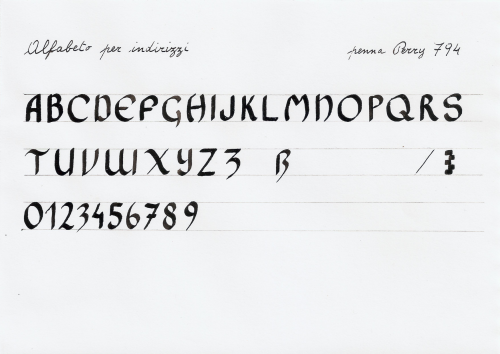 Alfabeto per indirizzi penna Perry 794
ABCDEFGHIJKLMNOPQRS
TUVWXYZ3 ß /
0123456789